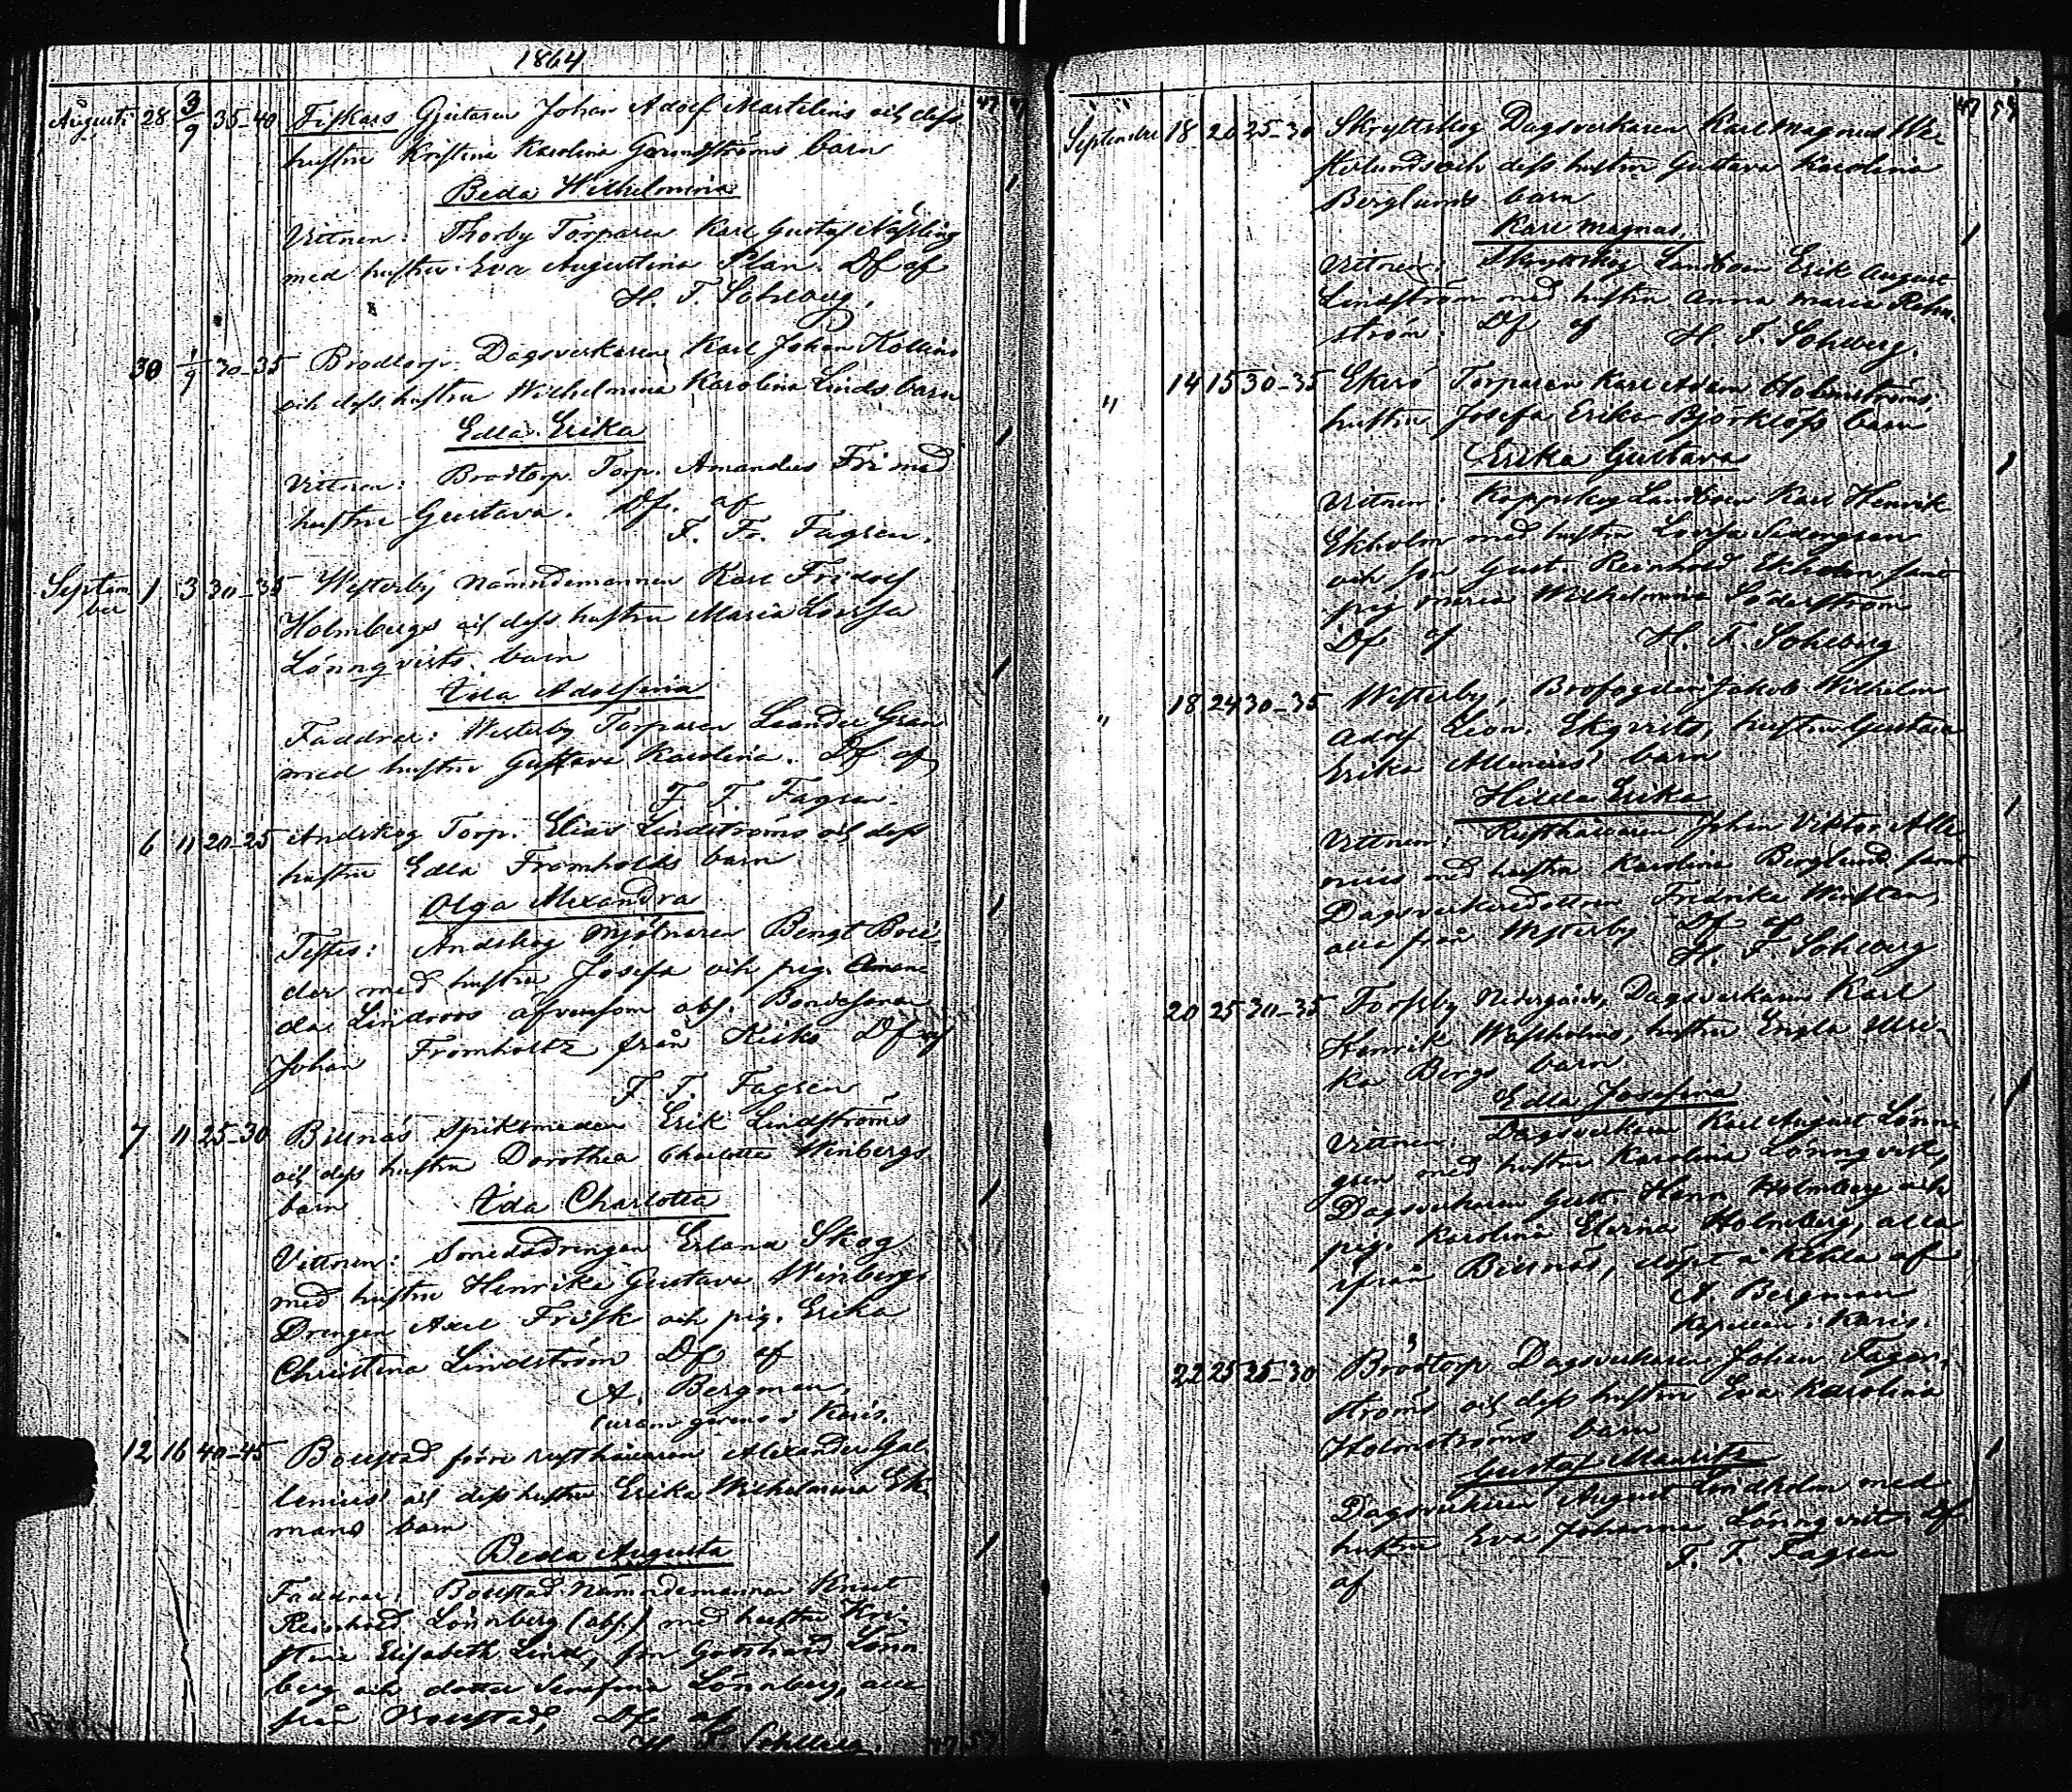 1864
47
Augusti 28 3/9 35-40 Fiskars Gjutaren Johan Adolf Martelins och dess
hustru Kristina Karolina barn
Beda Wilhelmina 1
Vittnen: Thorby Torparen Karl Gustaf Näsling
med hustru Eva Augustina Plan. Df af
H. F. Sohlberg.
30 1/9 30-35 Brödtorp. Dagsverkaren Karl Johan Kollins
och dess hustru Wilhelmina Karolina Linds barn
Edla Erika 1
Vittnen: Brödtorp Torp. Amandus Fri med
hustru Gustava. Df. af
F. F. Fagrén.
Septem
ber 1 3 30-35 Westerby Nämndemannen Karl Fridolf
Holmbergs och dess hustru Maria Lovisa
Lönnqvists barn 1
Ida Adolfina
Faddrar: Westerby Torparen Leander Gran
med hustru Gustava Karolina. Df af
F. F. Fagrén.
6 11 20-25 Andskog Torp. Elias Lindströms och dess
hustru Edla Fromholts barn
Olga Alexandra 1
Testes: Andskog Mjölnaren Bengt
der med hustru Josefa och pig. Aman-
da Lindroos äfvensom abs. Bondesonen
Johan Fromholtz från Kisko Df af
F. F. Fagrén
7 11 25-30 Billnäs Spiksmeden Erik Lindströms
och dess hustru Dorothea Charlotta Winbergs
barn Ida Charlotta 1
Vittnen: Smedsdrengen Erland Skog
med hustru Henrika Gustava Winberg
Drengen Axel Frisk och pig. Erika
Christina Lindström Df af
A. Bergman,
curam gerens i Karis.
12 16 40-45 Bollstad förre rusthållaren Alexander Gal-
lenius' och dess hustru Erika Wilhelmina Ek-
mans barn
Beda Augusta 1
Faddrar: Bollstad Nämndemannen Knut
Reinhold Lönnberg (abs.) med hustru Kri-
stina Elisabeth Lind, son Gotthard Lönn-
berg och dotter Serafina Lönnberg, alla
från Bollstad, Df. af
H. F. Sohlberg.
47 57
September 18 20 25-30 Skryttskog Dagsverkaren Karl Magnus We-
sterlunds och dess hustru Gustava Karolina
Berglunds barn
Karl Magnus. 1
Vittnen: Skryttskog Landboen Erik August
Lindström med hustru Anna Maria
ström. Df af H. F. Sohlberg.
" 14 15 30-35 Ekerö Torparen Karl Adam Holmströms,
hustru Josefa Erika Björklöfs barn
Erika Gustava 1
Vittnen: Koppskog Landboen Karl Henrik
Ekholm med hustru Lovisa
och son Gust. Reinhold Ekholm samt
pig Maria Wilhelmina Söderström
Df af H. F. Sohlberg
" 18 24 30-35 Westerby, Brofogden Jakob Wilhelm
Adolf Leon. Ekqvists, hustru Gustava
Erika Allenius' barn
Hilda Erika 1
Vittnen: Rusthållaren Johan Viktor Alle-
nius med hustru Karolina Berglund samt
Dagsverkaredottren Fredrika Winsten,
alla från Westerby Df af
H. F. Sohlberg
20 25 30-35 Forsby Nedergårds, Dagsverkaren Karl
Henrik Westholms, hustru Engla Ulri-
ka Bergs barn
Edla Josefina 1
Vittnen: Dagsverkaren Karl August Lönn-
gren med hustru Karolina Lönnqvist,
Dagsverkaren Gust. Henr. Holmberg och
pig. Karolina Elvina Holmberg, alla
ifrån Billnäs, döpt å Kehla af
A. Bergman
Kapellan i Karis.
22 25 25-30 Brödtorp Dagsverkaren Johan Fager-
ströms och dess hustru Eva Karolina
Holmströms barn
Gustaf Mauritz 1
Dagsverkaren August Lindholm med
hustru Eva Johanna Lönnqvist. Df.
af F. F. Fagrén